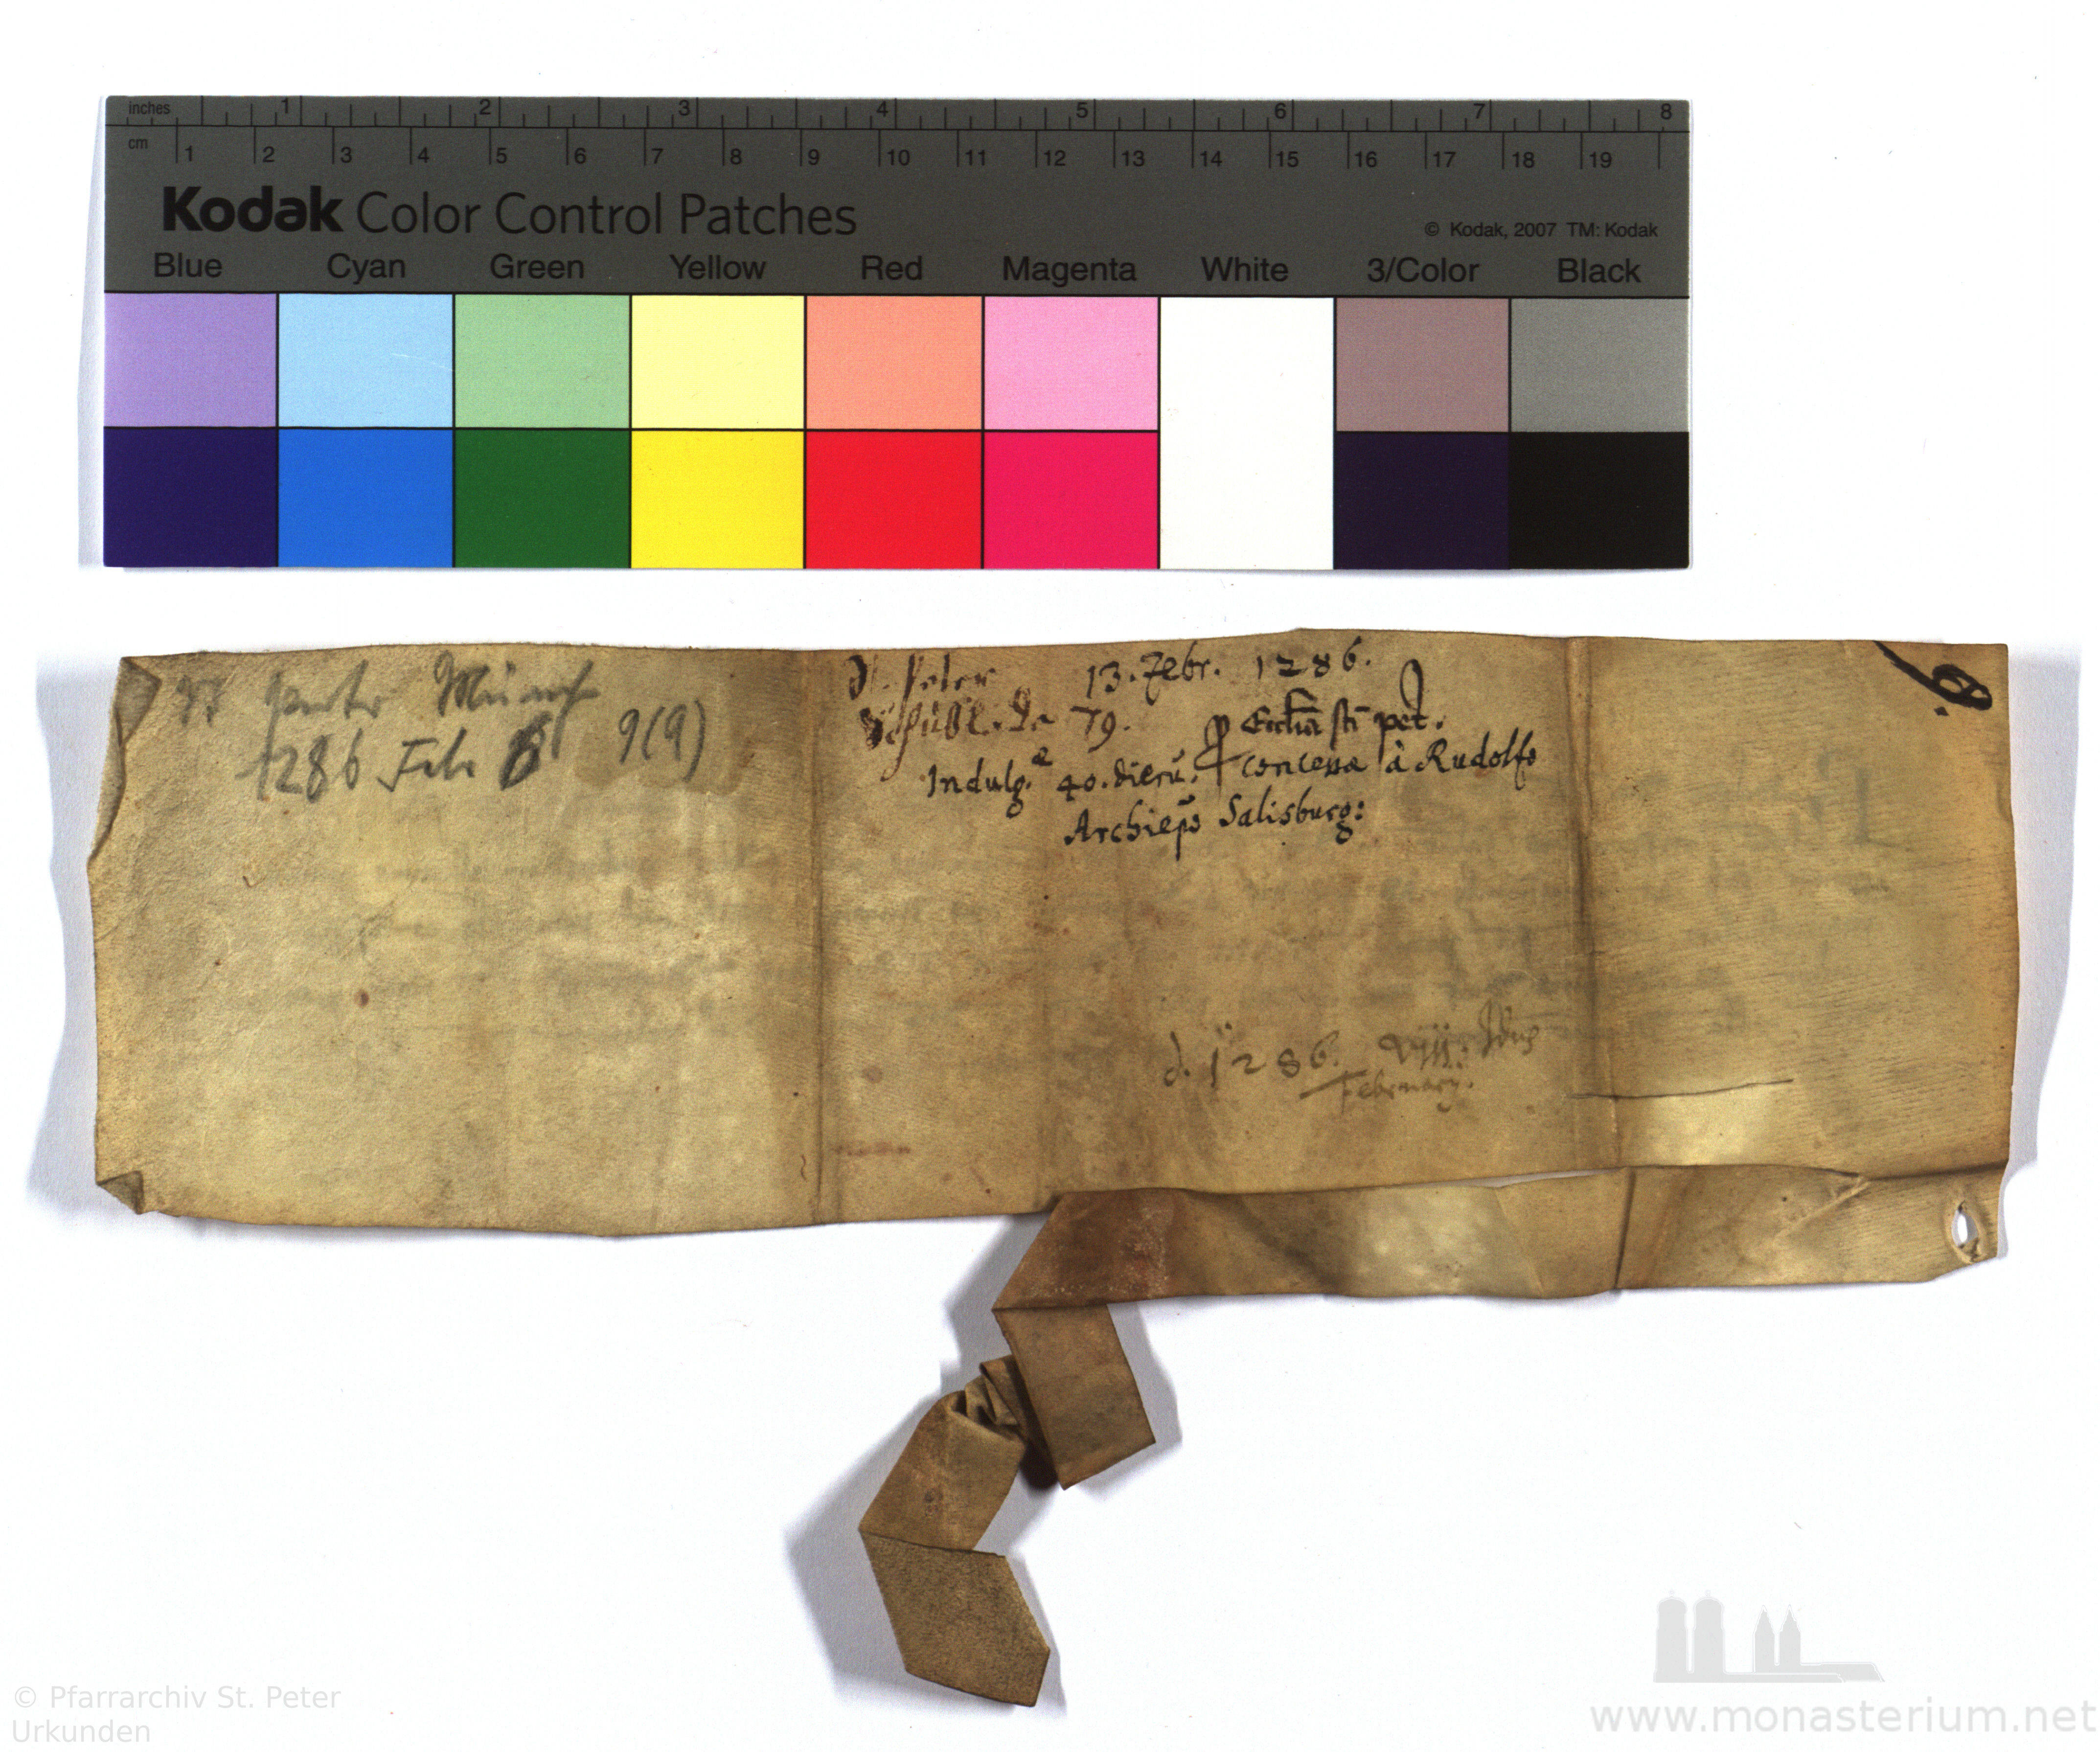 inches 1 2 3 4 5 6 7 8
cm 1 2 3 4 5 6 7 8 9 10 11 12 13 14 15 16 17 18 19
Kodak Color Control Patches
© Kodak, 2007 TM: Kodak
Blue Cyan Green Yellow Red Magenta White 3/Color Black
Münch
1286 Feb 6 9(9)
St. Peter 13. Febr. 1286.
Schubl. 79.
Eccłiæ sti pet.
Indulg.æ 40. dierū. concessæ à Rudolfo
Archiepo Salisburg:
9.
d. 1286. VIII. Idus
February.
© Pfarrarchiv St. Peter
Urkunden
www.monasterium.net